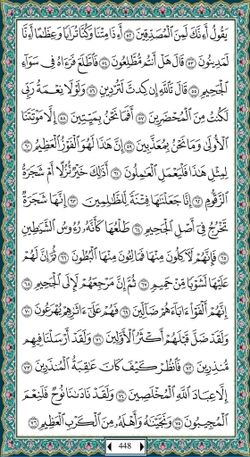 يَقُولُ أَءِنَّكَ لَمِنَ ٱلْمُصَدِّقِينَ ٥٢ أَءِذَا مِتْنَا وَكُنَّا تُرَابًا وَعِظَٰمًا أَءِنَّا
لَمَدِينُونَ ٥٣ قَالَ هَلْ أَنتُم مُّطَّلِعُونَ ٥٤ فَٱطَّلَعَ فَرَءَاهُ فِى سَوَآءِ
ٱلْجَحِيمِ ٥٥ قَالَ تَٱللَّهِ إِن كِدتَّ لَتُرْدِينِ ٥٦ وَلَوْلَا نِعْمَةُ رَبِّى
لَكُنتُ مِنَ ٱلْمُحْضَرِينَ ٥٧ أَفَمَا نَحْنُ بِمَيِّتِينَ ٥٨ إِلَّا مَوْتَتَنَا
ٱلْأُولَىٰ وَمَا نَحْنُ بِمُعَذَّبِينَ ٥٩ إِنَّ هَٰذَا لَهُوَ ٱلْفَوْزُ ٱلْعَظِيمُ ٦٠
لِمِثْلِ هَٰذَا فَلْيَعْمَلِ ٱلْعَٰمِلُونَ ٦١ أَذَٰلِكَ خَيْرٌ نُّزُلًا أَمْ شَجَرَةُ
ٱلزَّقُّومِ ٦٢ إِنَّا جَعَلْنَٰهَا فِتْنَةً لِّلظَّٰلِمِينَ ٦٣ إِنَّهَا شَجَرَةٌ
تَخْرُجُ فِىٓ أَصْلِ ٱلْجَحِيمِ ٦٤ طَلْعُهَا كَأَنَّهُۥ رُءُوسُ ٱلشَّيَٰطِينِ
٦٥ فَإِنَّهُمْ لَءَاكِلُونَ مِنْهَا فَمَالِـُٔونَ مِنْهَا ٱلْبُطُونَ ٦٦ ثُمَّ إِنَّ لَهُمْ
عَلَيْهَا لَشَوْبًا مِّنْ حَمِيمٍ ٦٧ ثُمَّ إِنَّ مَرْجِعَهُمْ لَإِلَى ٱلْجَحِيمِ ٦٨
إِنَّهُمْ أَلْفَوْا۟ ءَابَآءَهُمْ ضَآلِّينَ ٦٩ فَهُمْ عَلَىٰٓ ءَاثَٰرِهِمْ يُهْرَعُونَ ٧٠
وَلَقَدْ ضَلَّ قَبْلَهُمْ أَكْثَرُ ٱلْأَوَّلِينَ ٧١ وَلَقَدْ أَرْسَلْنَا فِيهِم
مُّنذِرِينَ ٧٢ فَٱنظُرْ كَيْفَ كَانَ عَٰقِبَةُ ٱلْمُنذَرِينَ ٧٣
إِلَّا عِبَادَ ٱللَّهِ ٱلْمُخْلَصِينَ ٧٤ وَلَقَدْ نَادَىٰنَا نُوحٌ فَلَنِعْمَ
ٱلْمُجِيبُونَ ٧٥ وَنَجَّيْنَٰهُ وَأَهْلَهُۥ مِنَ ٱلْكَرْبِ ٱلْعَظِيمِ ٧٦
448